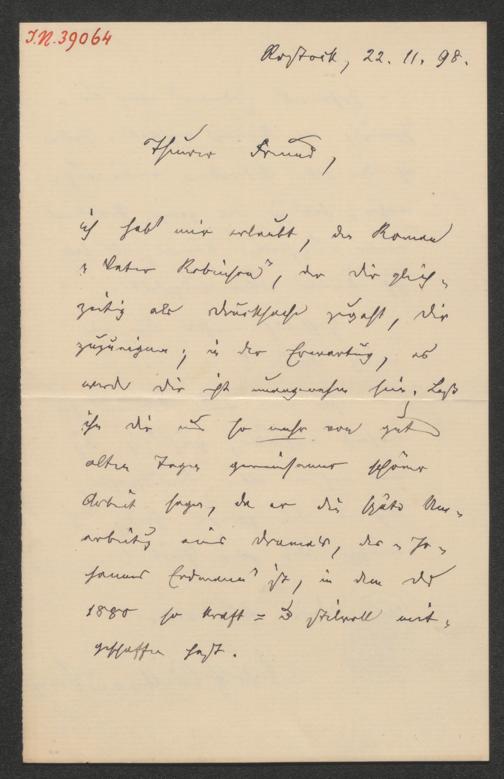 I.N. 39064
Rostock, 22. 11. 98.
Theurer Freund,
ich hab' mir erlaubt, den Roman
„Vater Robinson", der Dir gleich-
zeitig als Drucksache zugeht, Dir
zuzueignen; in der Erwartung, es
werde Dir nicht unangenehm sein. Laß
ihn Dir um so mehr von gut
alten Tagen gemeinsamer schöner
Arbeit sagen, da er die späte Um-
arbeitung eines Dramas, des „Jo-
hannes Erdmann" ist, in dem Du
1880 so kraft= u stilvoll mit-
geschaffen hast.